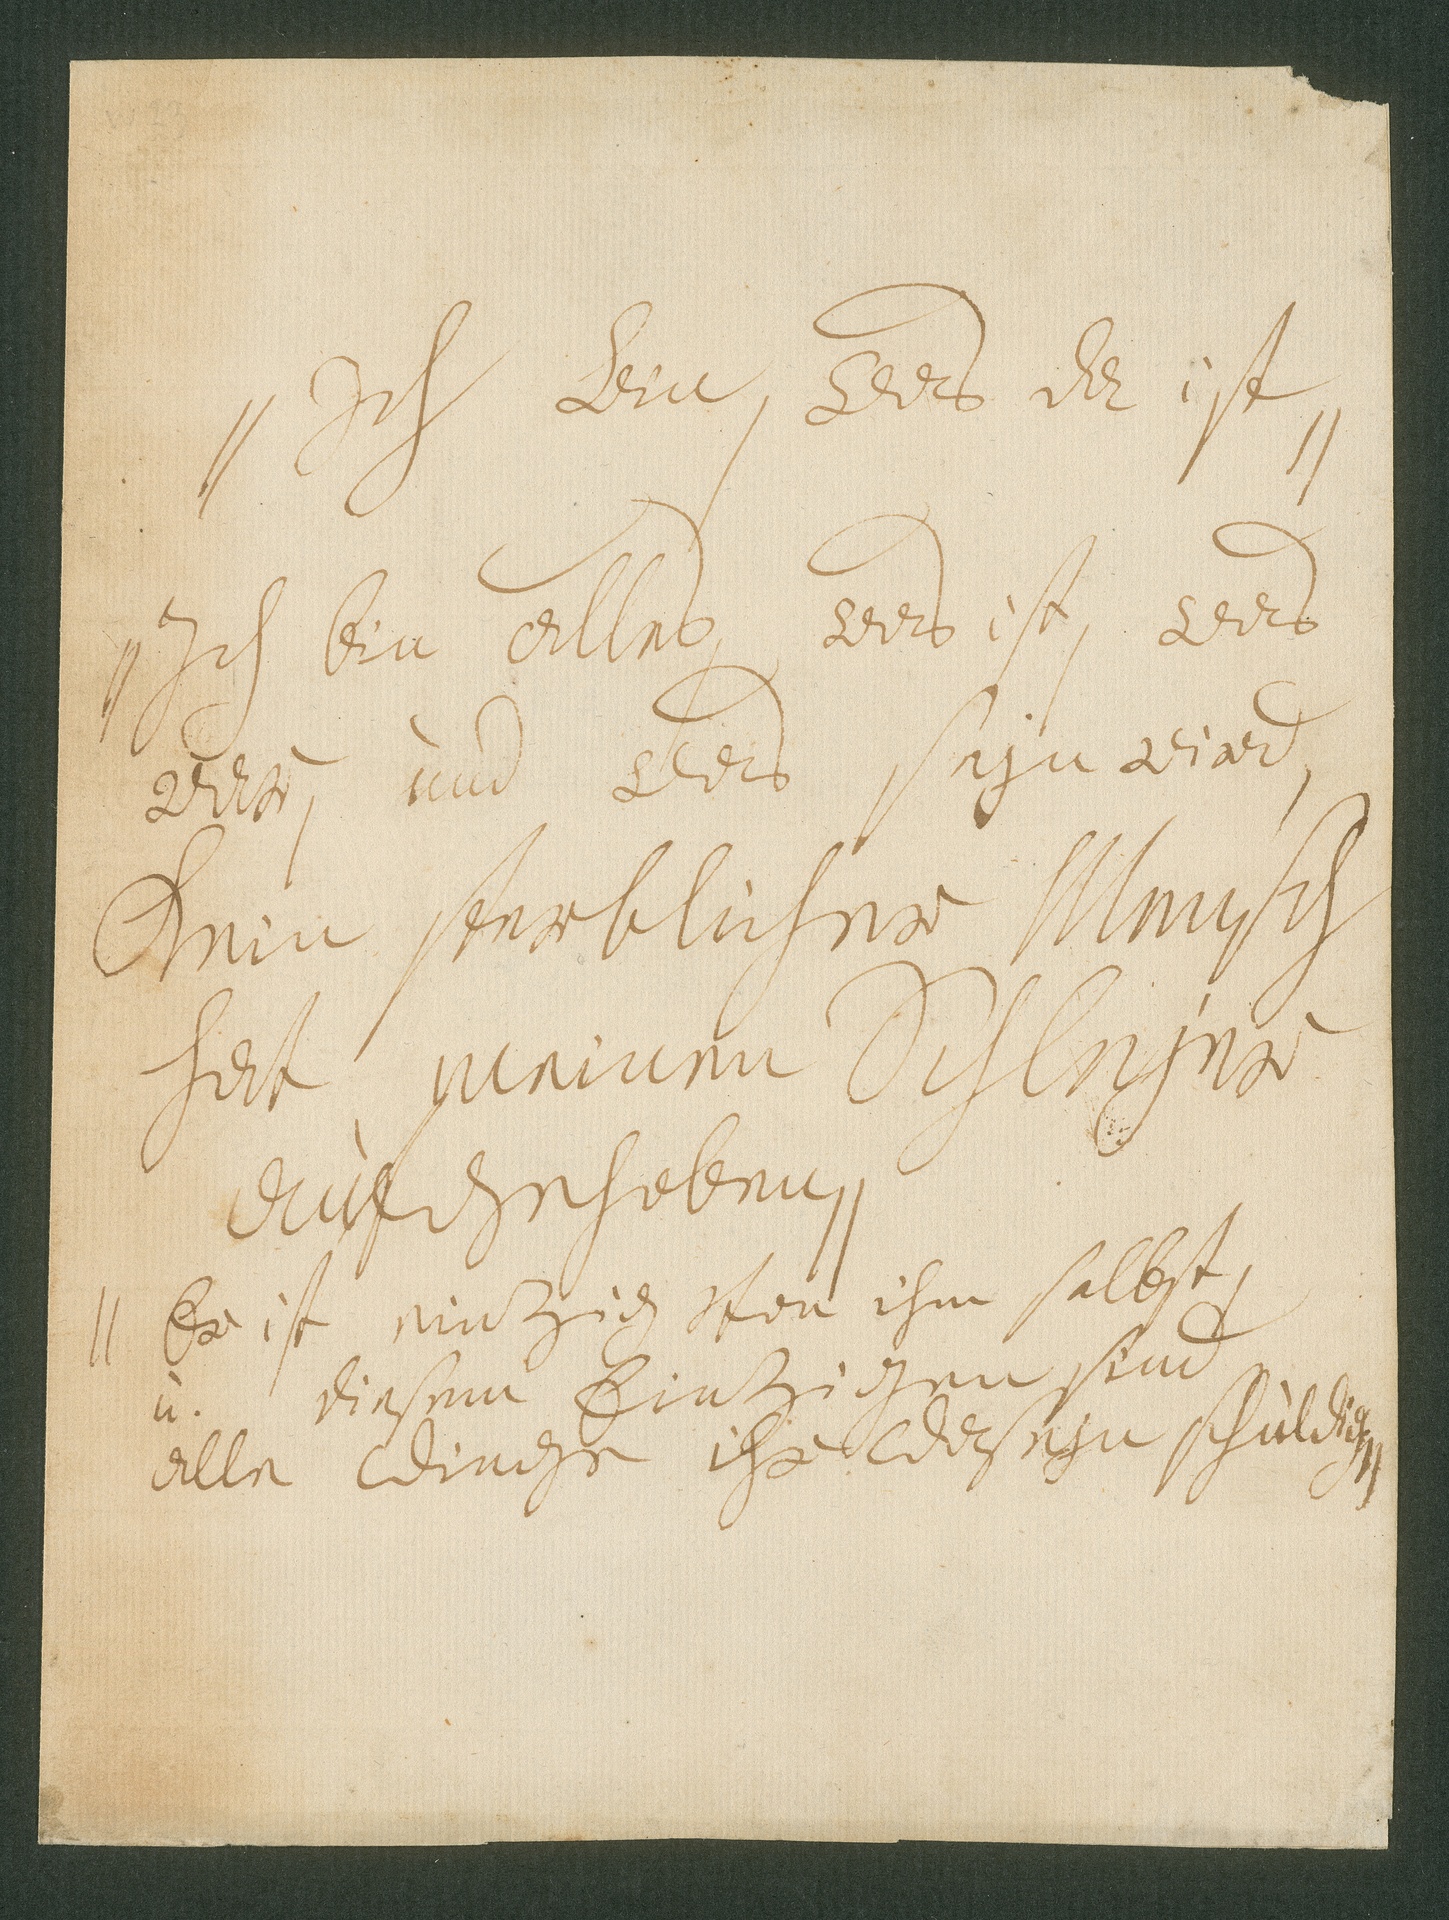 „Ich bin, was da ist„
„Ich bin alles, was ist, was
war, und was seyn wird,
Kein sterblicher Mensch
hat meinen Schleyer
aufgehoben„
„Er ist einzig von ihm selbst,
u. diesem Einzigen sind
alle Dinge ihr Daseyn schuldig„